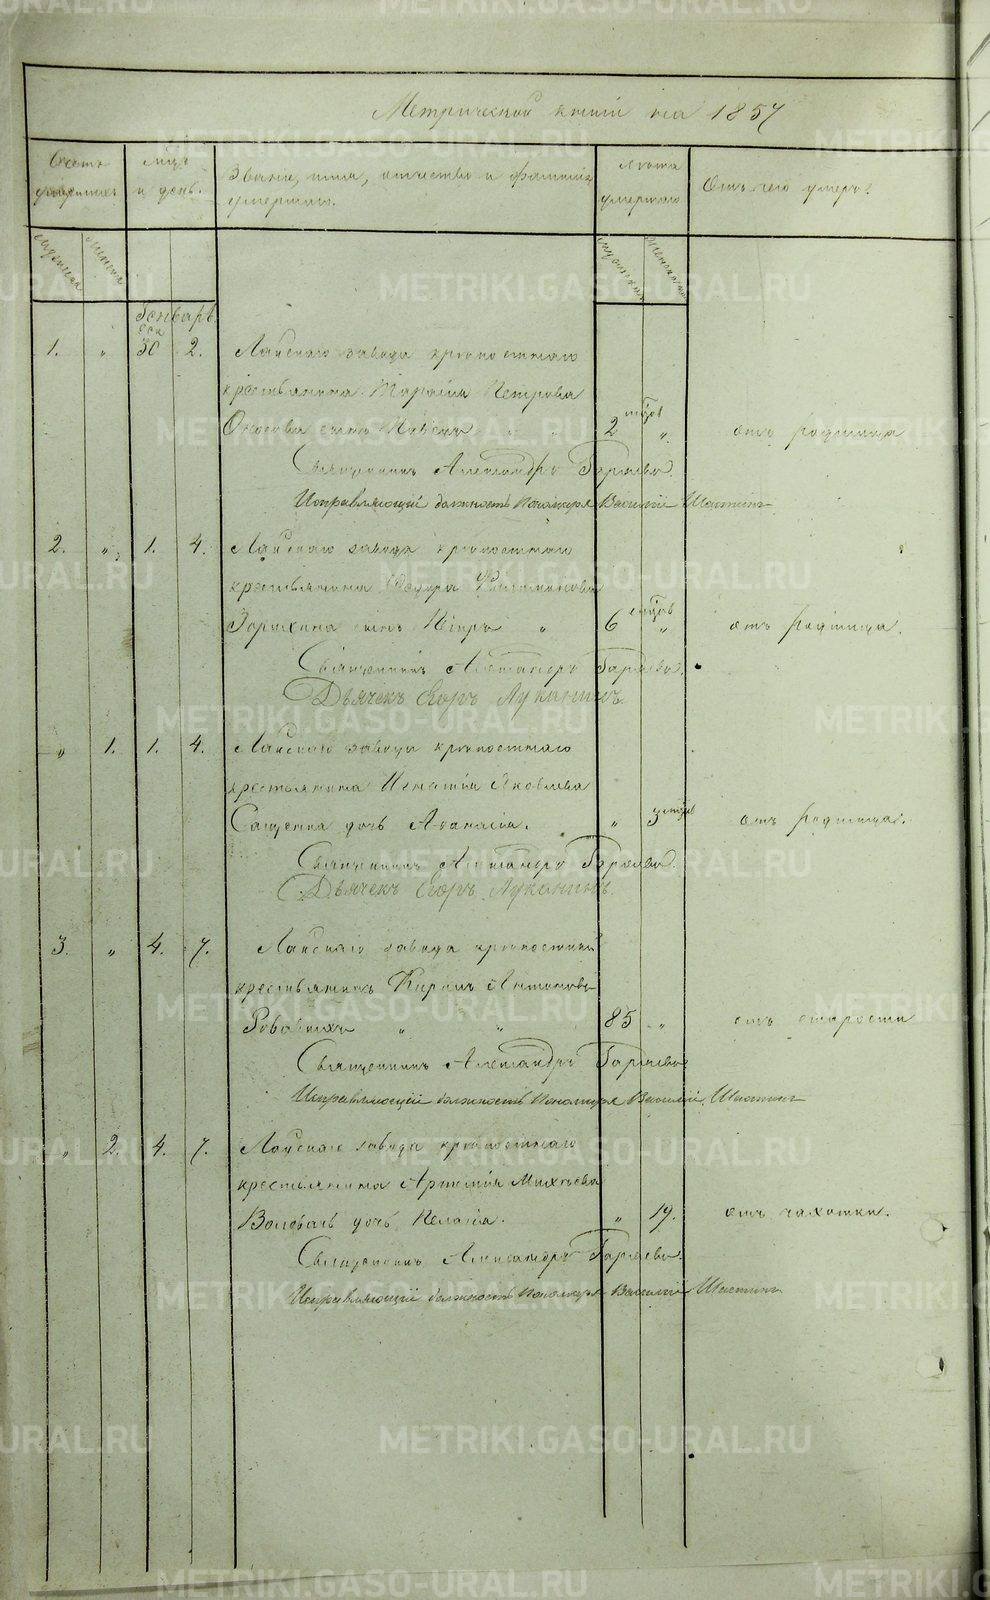 METRIKI.GASO-URAL.RU
Метрической книги на 1857
Счетъ умершихъ
Мѣсяцъ и день.
Званіе, имя, отчество и фамилія умершаго.
Лѣта умершаго
Отъ чего умеръ?
мужеска
женска
мужескаго
женскаго
Генварь.
Дек
1. „ 30 2. Лайскаго завода крѣпостнаго
крестьянина Тарасія Петрова
сынъ „ 2 мѣсяцов „ отъ родимца
Священникъ Александръ Гаряевъ.
Исправляющій должность Пономаря Василій Шастинъ
2. „ 1. 4. Лайскаго завода крѣпостнаго
крестьянина Ѳедора
Зорихина сынъ Петръ „ 6 мѣсяцов „ отъ родимца.
Священникъ Александръ Гаряевъ.
Дьячекъ Егоръ Луканинъ.
„ 1. 1. 4. Лайскаго завода крѣпостнаго
крестьянина Игнатія Яковлева
дочь Аѳанасія. „ 3 мѣсяцов отъ родимца.
Священникъ Александръ Гаряевъ.
Дьячекъ Егоръ Луканинъ.
3. „ 4. 7. Лайскаго завода крѣпостный
крестьянинъ Кирилъ Антоновъ
„ „ 85 „ отъ старости
Священникъ Александръ Гаряевъ
Исправляющій должность Пономаря Василій Шастинъ
„ 2. 4. 7. Лайскаго завода крѣпостнаго
крестьянина Артемія Михѣева
дочь Пелагія. „ 19. отъ чахотки.
Священникъ Александръ Гаряевъ.
Исправляющій должность Пономаря Василій Шастинъ